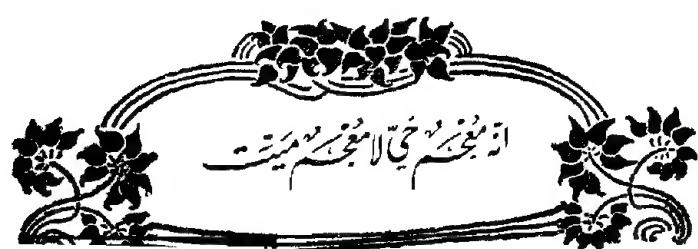 انّهُ مُعْجَمٌ حَيّ لا مُعْجَمٌ مَيّت